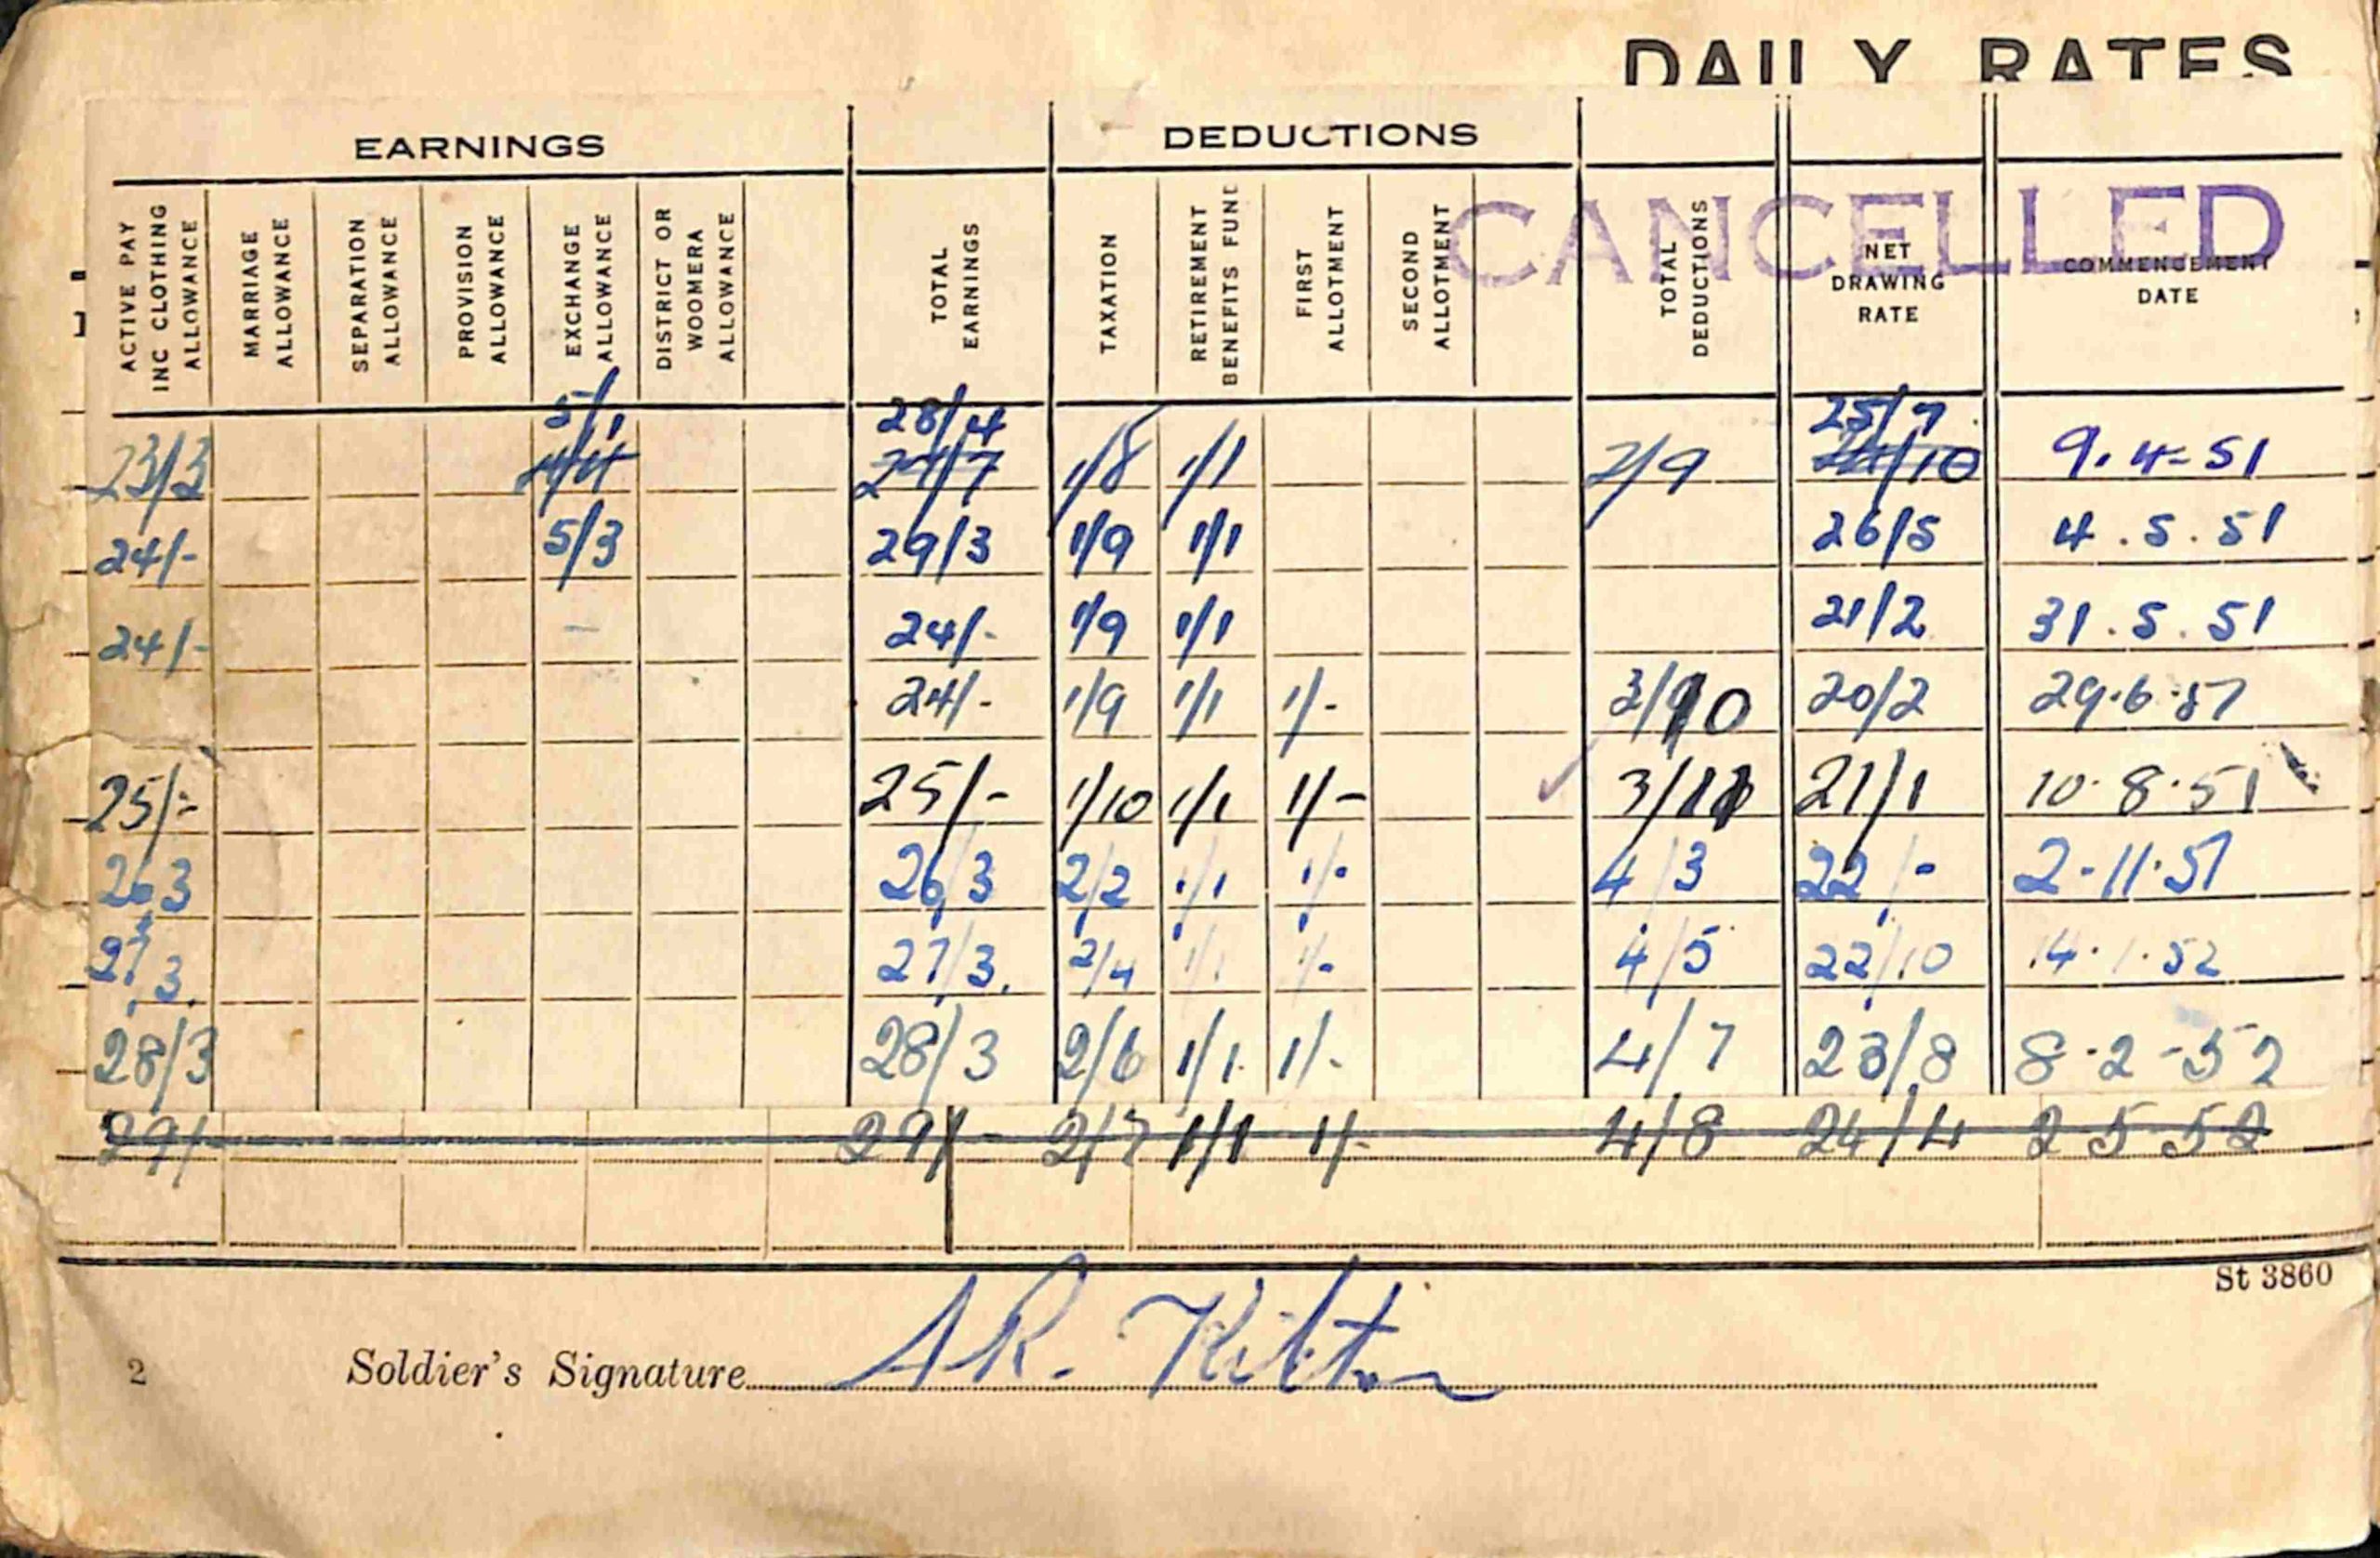 DAILY RATES
EARNINGS DEDUCTIONS
CANCELLED
ACTIVE PAY INC CLOTHING ALLOWANCE
MARRIAGE ALLOWANCE
SEPARATION ALLOWANCE
PROVISION ALLOWANCE
EXCHANGE ALLOWANCE
DISTRICT OR WOOMERA ALLOWANCE
TOTAL EARNINGS
TAXATION
RETIREMENT BENEFITS FUND
FIRST ALLOTMENT
SECOND ALLOTMENT
TOTAL DEDUCTIONS
NET DRAWING RATE
COMMENCEMENT DATE
5/1 28/4 25/7
23/3 24/7 1/8 1/1 2/9 24/10 9.4-51
24/- 5/3 29/3 1/9 1/1 26/5 4.5.51
24/- - 24/- 1/9 1/1 21/2 31.5.51
24/- 1/9 1/1 1/- 3/10 20/2 29.6.51
25/- 25/- 1/10 1/1 1/- 3/11 21/1 10.8.51
26/3 26/3 2/2 1/1 1/- 4/3 22/- 2-11.51
27/3. 27/3. 2/4 1/1 1/- 4/5 22/10 14.1.52
28/3 28/3 2/6 1/1 1/- 4/7 23/8 8-2-52
29/- 29/- 2/7 1/1 1/- 4/8 24/4 2 5 52
St 3860
2 Soldier's Signature